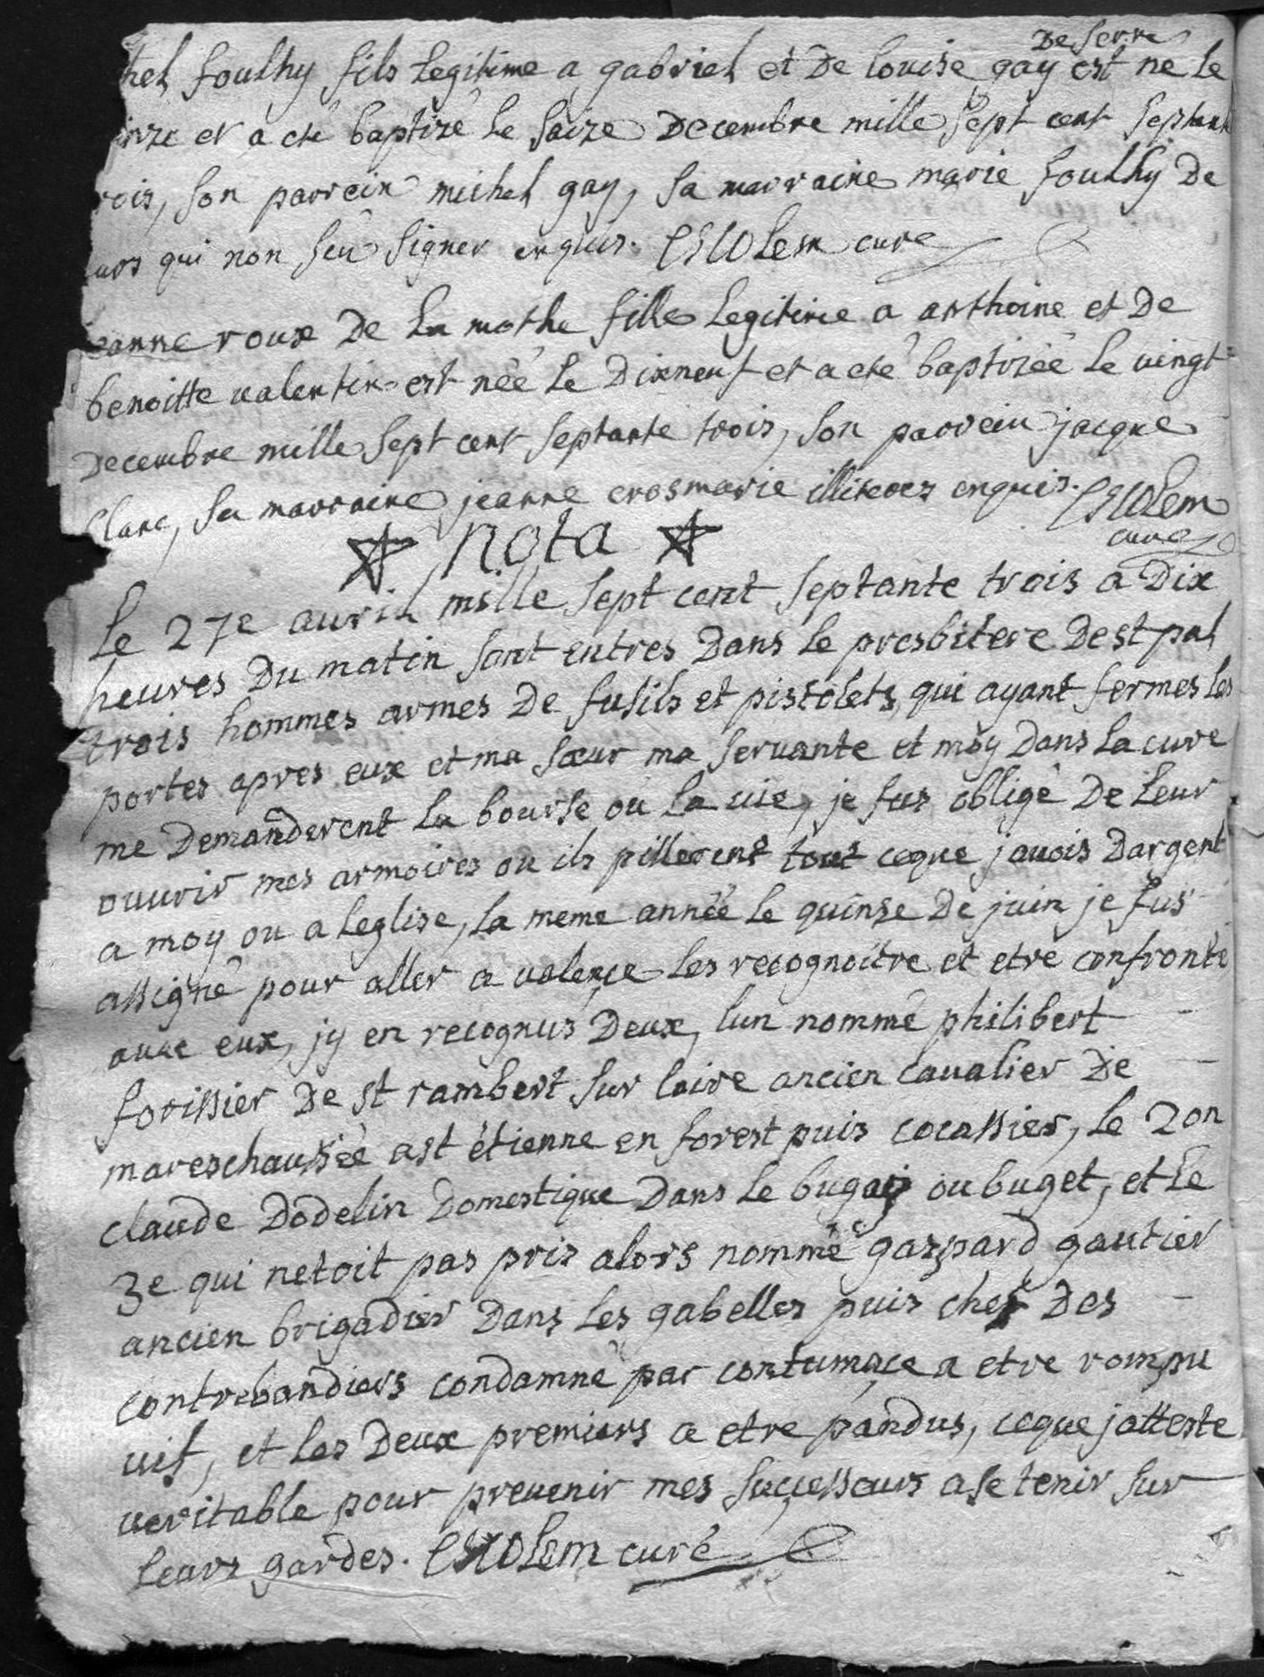 De serre
hel foulhy fils legitime a gabriel et De louise gay est ne le
inze et a eté baptizé le saize Decembre mille sept cent septant
rois, son parrein michel gay, sa marraine marie foulhy De
urs qui non seu signer enquis. cure
eanne roux De la mothe fille legitime a anthoine et De
benoitte valentin est néé le Dixneuf et a eté baptizéé le vingt
Decembre mille sept cent septante trois, son parrein jacque
Clare, sa marraine jeanne crosmarie illiterez enquis.
cure
nota
Le 27e auril mille sept cent septante trois a Dix
heures Du matin sont entres Dans le presbitere De st pal
trois hommes armes De fusils et pistolets qui ayant fermes les
portes apres eux et ma sœur ma seruante et moy Dans la cure
me Demanderent la bourse ou la uie, je fus obligé De leur
ouurir mes armoires ou ils pillerent tout ceque jauois Dargent
a moy ou a leglise, la meme annéé le quinze De juin je fus
assigné pour aller a valence les recognoitre et etre confronté
auec eux, jy en recognus Deux, lun nommé philibert
forissier De st rambert sur loire ancien caualier De
mareschausséé a st étienne en forest puis cocassier, le 2on
claude Dodelin Domestique Dans le bugay ou buget, et le
3e qui netoit pas pris alors nommé gaspard gautier
ancien brigadier Dans les gabelles puis chef Des
contrebandiers condamné par contumace a etre rompu
uif, et les Deux premiers a etre pandus, ceque jatteste
ueritable pour preuenir mes successeurs a se tenir sur
leurs gardes. curé